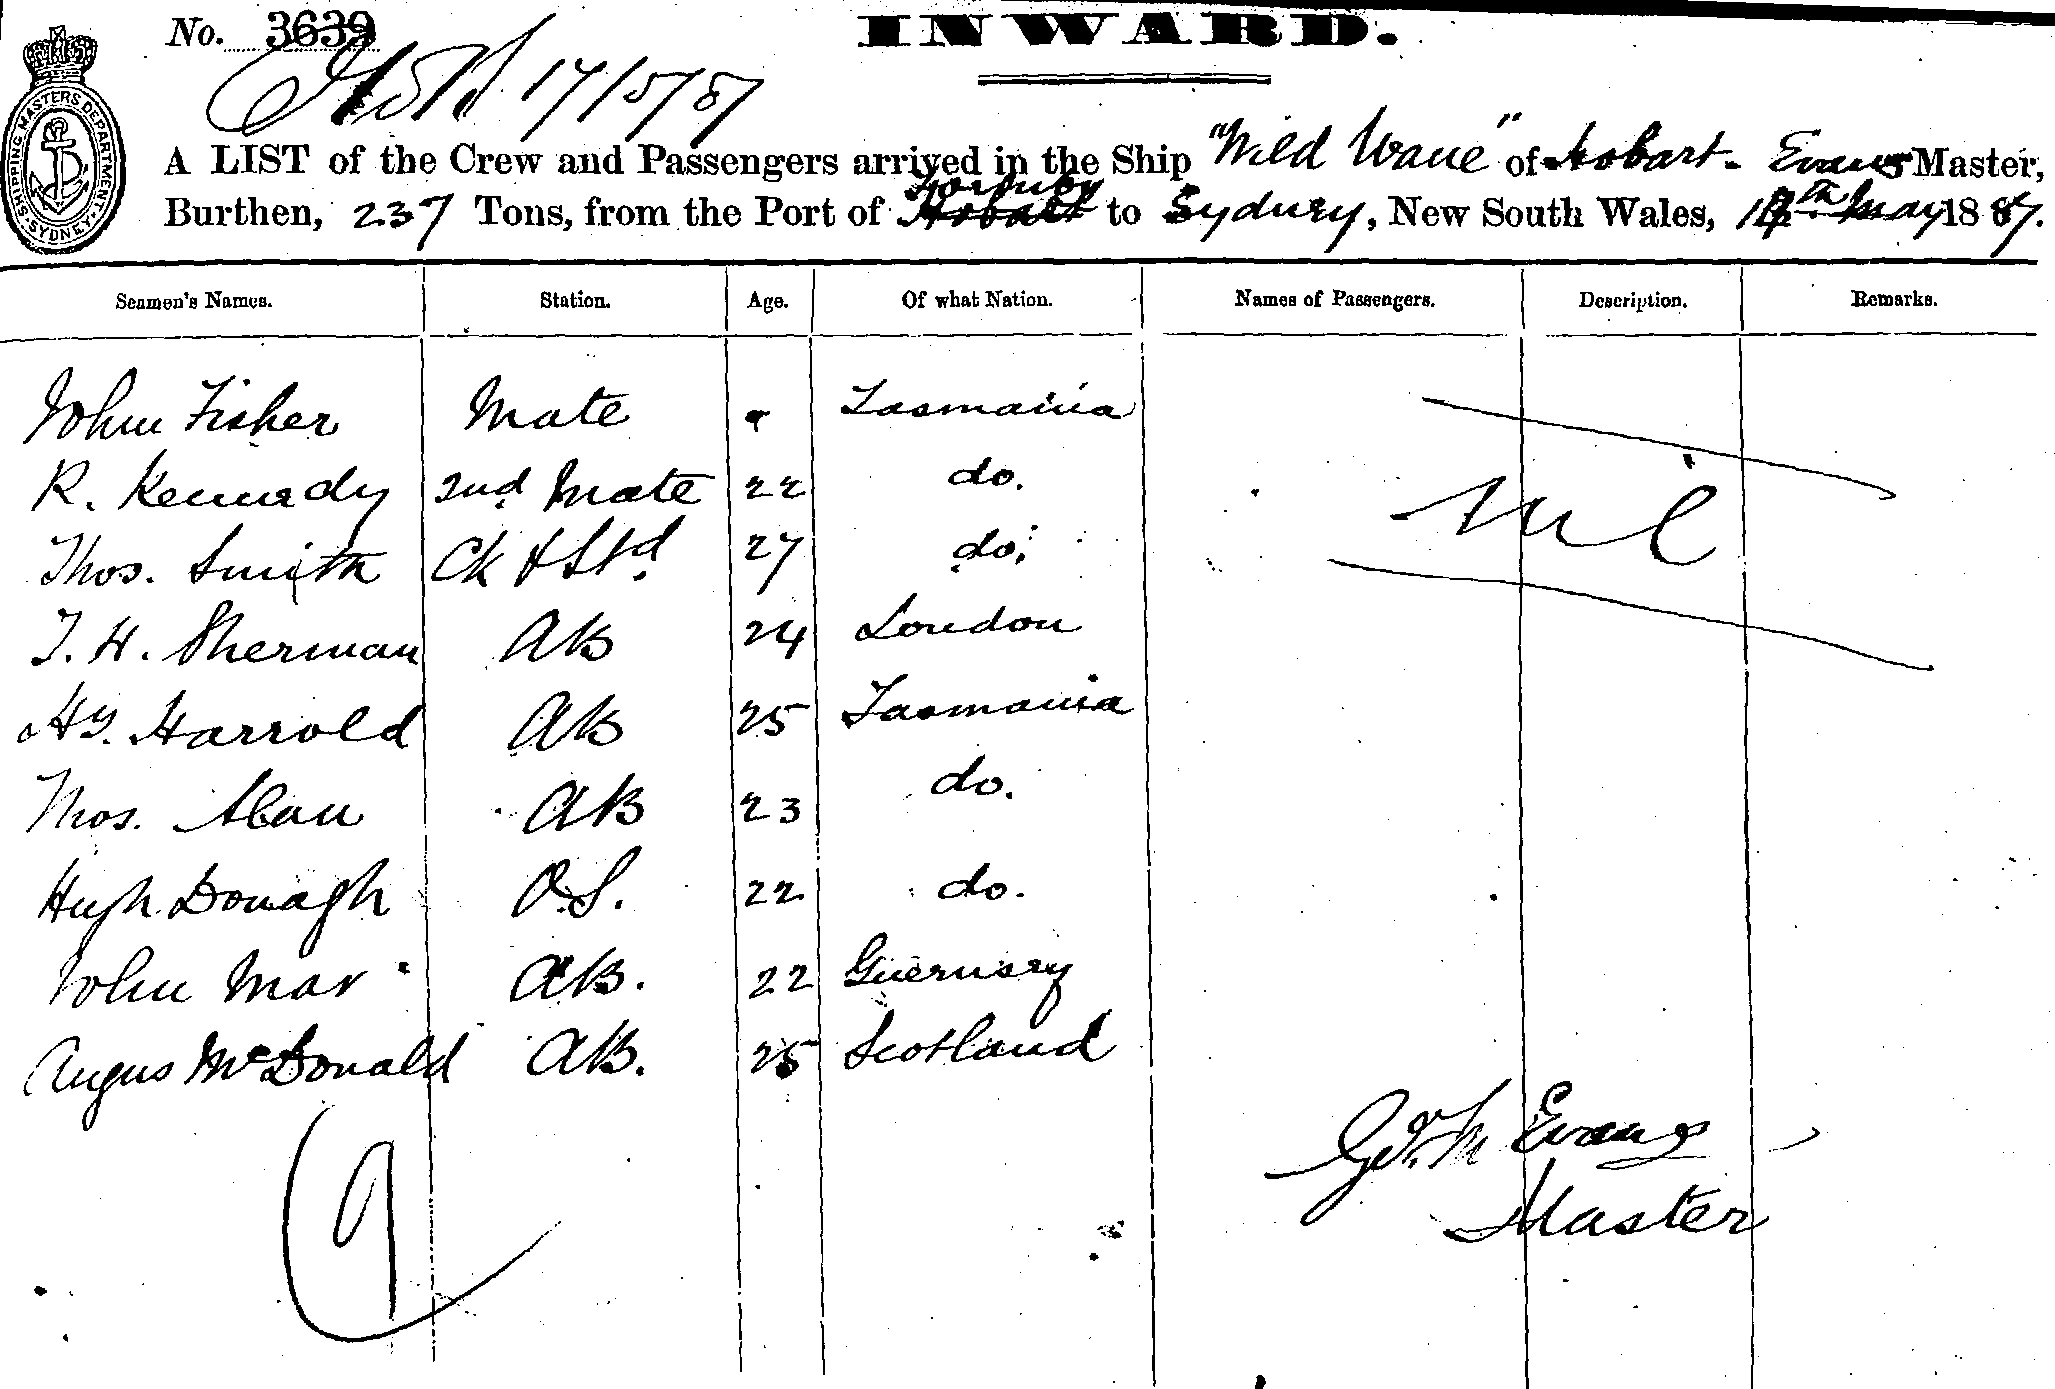 No. 3639
INWARD.
17/5/87
SHIPPING MASTERS DEPARTMENT. SYDNEY.
A LIST of the Crew and Passengers arrived in the Ship "Wild Wave" of Hobart. Evans Master,
Burthen, 237 Tons, from the Port of Hobart to Sydney, New South Wales, May 1887.
Seamen's Names. Station. Age. Of what Nation. Names of Passengers. Description. Remarks.
John Fisher Mate Tasmania
R. Kennedy 2nd Mate 22 do.
Nil
Thos. Smith Ck & Std. 27 do.
T. H. Sherman AB 24 London
Hy. Harrold AB 25 Tasmania
Thos. Alan AB 23 do.
Hugh Donagh O.S. 22 do.
John Mar AB. 22 Guernsey
Angus McDonald AB. 25 Scotland
Evans
Master
9